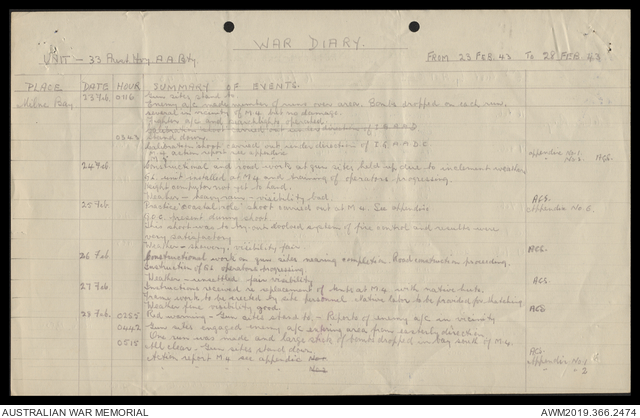 WAR DIARY.
UNIT - 33 Hvy A.A. Bty FROM 23 FEB. 43 TO 28 FEB 43
PLACE DATE HOUR SUMMARY OF EVENTS.
Milne Bay 23 Feb. 0116 Gun sites stand to.
Enemy a/c made number of runs over area. Bombs dropped on each run,
several in vicinity of M.4 but no damage.
Fighter a/c and searchlights operated.
0343 Stand down.
Calibration shoot carried out under direction of I.G.A.A.D.C.
M.4 action report see appendix Appendix No. 1.
24 Feb. Constructional and road work at gun sites held up due to inclement weather
G.L. unit installed at M.4 and training of operators progressing.
Height computor not yet to hand.
Weather - heavy rain - visibility bad. ACS.
25 Feb. Practice coastal role shoot carried out at M.4. See appendix Appendix No. 6.
present during shoot
This shoot was to try out evolved system of fire control and results were
very satisfactory
Weather - showery, visibility fair. ACS.
26 Feb Constructional work on gun sites nearing completion. Road construction proceeding.
Instruction of GL operators progressing.
Weather - unsettled fair visibility ACS.
27 Feb Instructions received re replacement of tents at M.4 with native huts.
Frame work to be erected by site personnel. Native labor to be provided for thatching
Weather fine visibility good. ACS
28 Feb. 0255 Red warning - Gun sites stand to - Reports of enemy a/c in vicinity
0442 Gun sites engaged enemy a/c entering area from easterly direction
One run was made and large stick of bombs dropped in bay south of M.4.
0515 All clear. Gun sites stand down. ACS
Action report M.4 see appendix Appendix No. 1
" 2
AUSTRALIAN WAR MEMORIAL AWM2019.366.2474